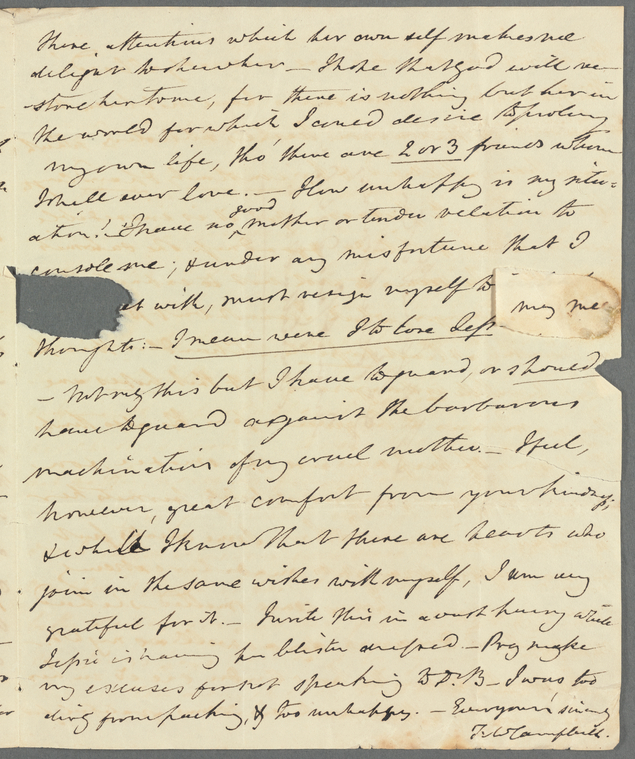 these attentions which her own self makes me
delight to shew her — I hope that God will re-
-store her to me, for there is nothing but her in
the world for which I could desire to prolong
my own life, tho' there are 2 or 3 friends whom
I shall ever love. — How unhappy is my situ-
ation! I have no good mother or tender relation to
console me; & under any misfortune that I
et with, must resign myself to my
thoughts: — I mean were I to lose
— Not only this but I have to guard, or should
have to guard against the barbarous
machinations of my cruel mother. — I feel,
however, great comfort from your kindness,
& while I know that there are hearts who
join in the same wishes with myself, I am very
grateful for it. — I write this in a hurry while
is having her blister dressed — Pray make
my excuses for not speaking to Dr. B — I was too
from packing, & too unhappy. — Ever yours sincerely
Campbell.